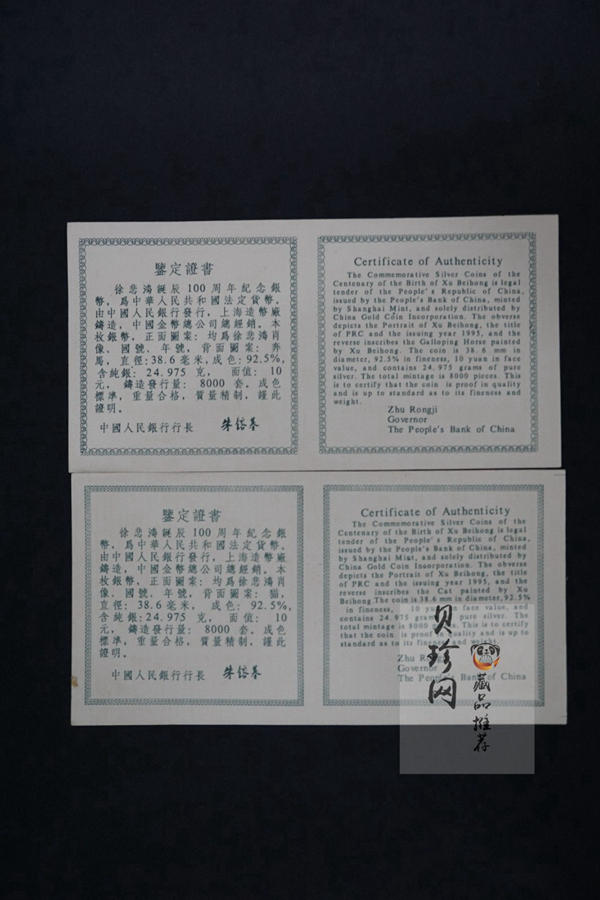 鑒定證書
徐悲鴻誕辰100周年紀念銀
幣，爲中華人民共和國法定貨幣。
由中國人民銀行發行，上海造幣廠
鑄造，中國金幣總公司總經銷。本
枚銀幣，正面圖案：均爲徐悲鴻肖
像、國號、年號，背面圖案：奔
馬，直徑：38.6毫米，成色：92.5%，
含純銀：24.975 克， 面值： 10
元，鑄造發行量： 8000 套。成色
標準，重量合格，質量精制，謹此
證明。
中國人民銀行行長 朱鎔基
Certificate of Authenticity
The Commemorative Silver Coins of the
Centenary of the Birth of Xu Beihong is legal
tender of the People's Republic of China,
issued by the People's Bank of China, minted
by Shanghai Mint, and solely distributed by
China Gold Coin Incorporation. The obverse
depicts the Portrait of Xu Beihong, the title
of PRC and the issuing year 1995, and the
reverse inscribes the Galloping Horse painted
by Xu Beihong. The coin is 38.6 mm in
diameter, 92.5% in fineness, 10 yuan in face
value, and contains 24.975 grams of pure
silver. The total mintage is 8000 pieces. This
is to certify that the coin is proof in quality
and is up to standard as to its fineness and
weight.
Zhu Rongji
Governor
The People's Bank of China
鑒定證書
徐悲鴻誕辰100周年紀念銀
幣，爲中華人民共和國法定貨幣。
由中國人民銀行發行，上海造幣廠
鑄造，中國金幣總公司總經銷。本
枚銀幣，正面圖案：均爲徐悲鴻肖
像、國號、年號，背面圖案：猫，
直徑：38.6毫米， 成色：92.5%，
含純銀：24.975 克， 面值： 10
元，鑄造發行量： 8000 套。成色
標準，重量合格，質量精制，謹此
證明。
中國人民銀行行長 朱鎔基
Certificate of Authenticity
The Commemorative Silver Coins of the
Centenary of the Birth of Xu Beihong is legal
tender of the People's Republic of China,
issued by the People's Bank of China, minted
by Shanghai Mint, and solely distributed by
China Gold Coin Incorporation. The obverse
depicts the Portrait of Xu Beihong, the title
of PRC and the issuing year 1995, and the
reverse inscribes the Cat painted by Xu
Beihong. The coin is 38.6 mm in diameter, 92.5%
in fineness, 10 yuan in face value, and
contains 24.975 grams of pure silver. The total
mintage is 8000 pieces. This is to certify
that the coin is proof in quality and is up to
standard as to its fineness and weight.
Zhu Rongji
Governor
The People's Bank of China
贝珍网
藏品推荐